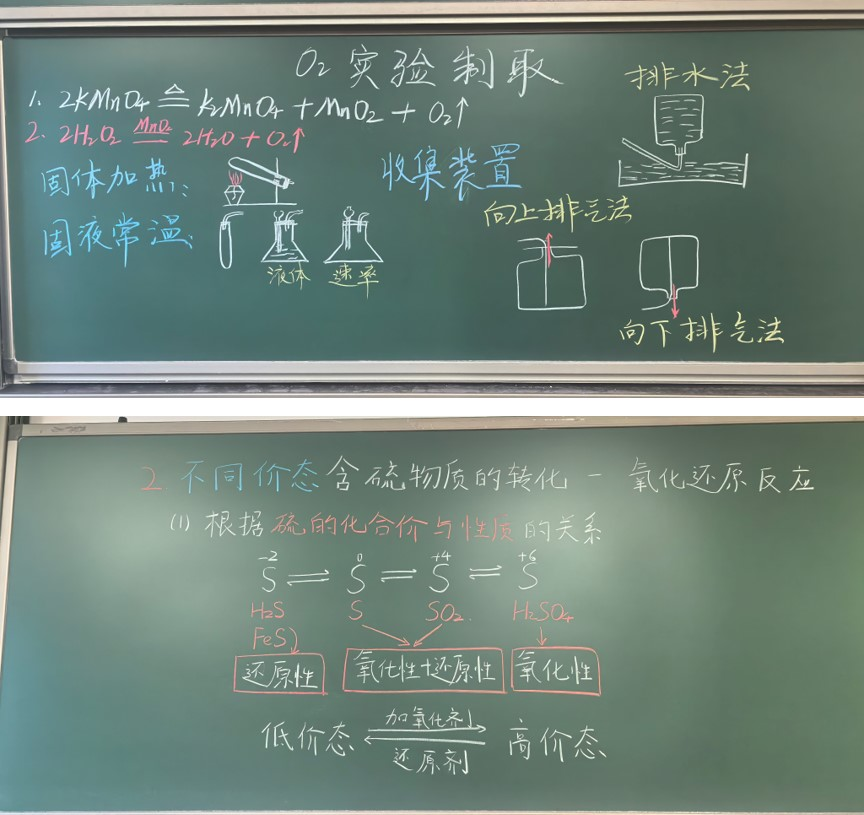 O₂ 实验制取
1. 2KMnO₄ ≜ K₂MnO₄ + MnO₂ + O₂↑
2. 2H₂O₂ MnO₂ 2H₂O + O₂↑
固体加热:
固液常温:
液体 速率
收集装置
排水法
向上排气法
向下排气法
2. 不同价态含硫物质的转化 — 氧化还原反应
(1) 根据硫的化合价与性质的关系
-2 0 +4 +6
S ⇌ S ⇌ S ⇌ S
H₂S S SO₂. H₂SO₄
FeS
还原性 氧化性+还原性 氧化性
加氧化剂
低价态 高价态
还原剂